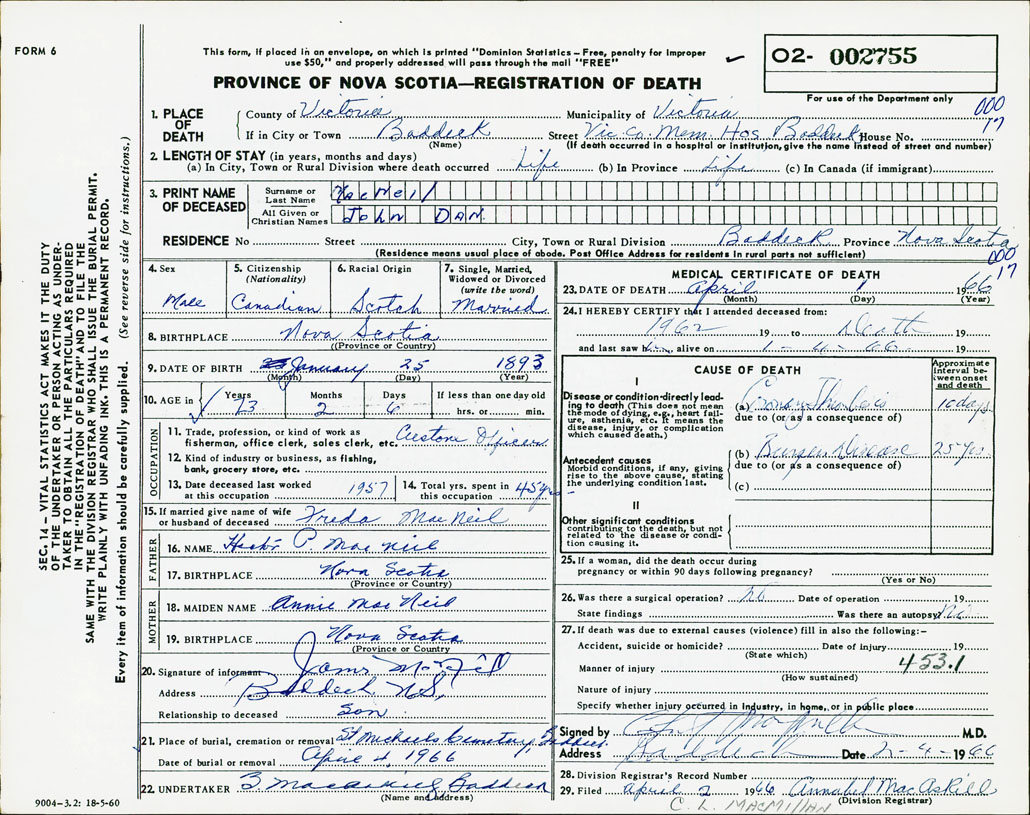 FORM 6
This form, if placed in an envelope, on which is printed "Dominion Statistics – Free, penalty for improper
use $50," and properly addressed will pass through the mail "FREE"
✓
O2- 002755
For use of the Department only
PROVINCE OF NOVA SCOTIA—REGISTRATION OF DEATH
000
17
1. PLACE OF DEATH
County of Victoria Municipality of Victoria
If in City or Town Baddeck Street Vic. Co. Mem. Hos Baddeck House No.
(Name) (If death occurred in a hospital or institution, give the name instead of street and number)
2. LENGTH OF STAY (in years, months and days)
(a) In City, Town or Rural Division where death occurred Life (b) In Province Life (c) In Canada (if immigrant)
3. PRINT NAME OF DECEASED
Surname or Last Name MacNeil
All Given or Christian Names John Dan
RESIDENCE No Street City, Town or Rural Division Baddeck Province Nova Scotia
(Residence means usual place of abode. Post Office Address for residents in rural parts not sufficient)
000
17
4. Sex
Male
5. Citizenship
(Nationality)
Canadian
6. Racial Origin
Scotch
7. Single, Married,
Widowed or Divorced
(write the word)
Married
8. BIRTHPLACE Nova Scotia
(Province or Country)
9. DATE OF BIRTH January 25 1893
(Month) (Day) (Year)
10. AGE in Years Months Days If less than one day old
73 2 6 hrs. or min.
OCCUPATION
11. Trade, profession, or kind of work as
fisherman, office clerk, sales clerk, etc. Custom Officer
12. Kind of industry or business, as fishing,
bank, grocery store, etc.
13. Date deceased last worked
at this occupation 1957
14. Total yrs. spent in
this occupation 45 yrs
15. If married give name of wife
or husband of deceased Freda MacNeil
FATHER
16. NAME Hector P. MacNeil
17. BIRTHPLACE Nova Scotia
(Province or Country)
MOTHER
18. MAIDEN NAME Annie MacNeil
19. BIRTHPLACE Nova Scotia
(Province or Country)
20. Signature of informant
Address Baddeck N.S.
Relationship to deceased Son
21. Place of burial, cremation or removal St Michaels Cemetery, Baddeck
Date of burial or removal April 4, 1966
22. UNDERTAKER Baddeck
(Name and address)
MEDICAL CERTIFICATE OF DEATH
23. DATE OF DEATH April 1 1966
(Month) (Day) (Year)
24. I HEREBY CERTIFY that I attended deceased from:
1962 19 to Death 19
and last saw him alive on 1-4-66 19
CAUSE OF DEATH
Approximate interval between onset and death
I
Disease or condition directly leading to death (This does not mean the mode of dying, e.g., heart failure, asthenia, etc. It means the disease, injury, or complication which caused death.)
(a) Coronary Thrombosis 10 days
due to (or as a consequence of)
Antecedent causes
Morbid conditions, if any, giving rise to the above cause, stating the underlying condition last.
(b) Burgers Disease 25 yrs.
due to (or as a consequence of)
(c)
II
Other significant conditions
contributing to the death, but not related to the disease or condition causing it.
25. If a woman, did the death occur during
pregnancy or within 90 days following pregnancy?
(Yes or No)
26. Was there a surgical operation? no Date of operation 19
State findings Was there an autopsy? no
27. If death was due to external causes (violence) fill in also the following:–
Accident, suicide or homicide? Date of injury 19
(State which)
Manner of injury 453.1
(How sustained)
Nature of injury
Specify whether injury occurred in industry, in home, or in public place
Signed by M.D.
Address Baddeck Date 2-4-1966
28. Division Registrar's Record Number
29. Filed April 2 1966 Annabel MacAskill
(Division Registrar)
C. L. MACMILLAN
9004-3.2: 18-5-60
SEC. 14 – VITAL STATISTICS ACT MAKES IT THE DUTY
OF THE UNDERTAKER OR PERSON ACTING AS UNDER-
TAKER TO OBTAIN ALL THE PARTICULARS REQUIRED
IN THE "REGISTRATION OF DEATH" AND TO FILE THE
SAME WITH THE DIVISION REGISTRAR WHO SHALL ISSUE THE BURIAL PERMIT.
WRITE PLAINLY WITH UNFADING INK. THIS IS A PERMANENT RECORD.
Every item of information should be carefully supplied. (See reverse side for instructions.)